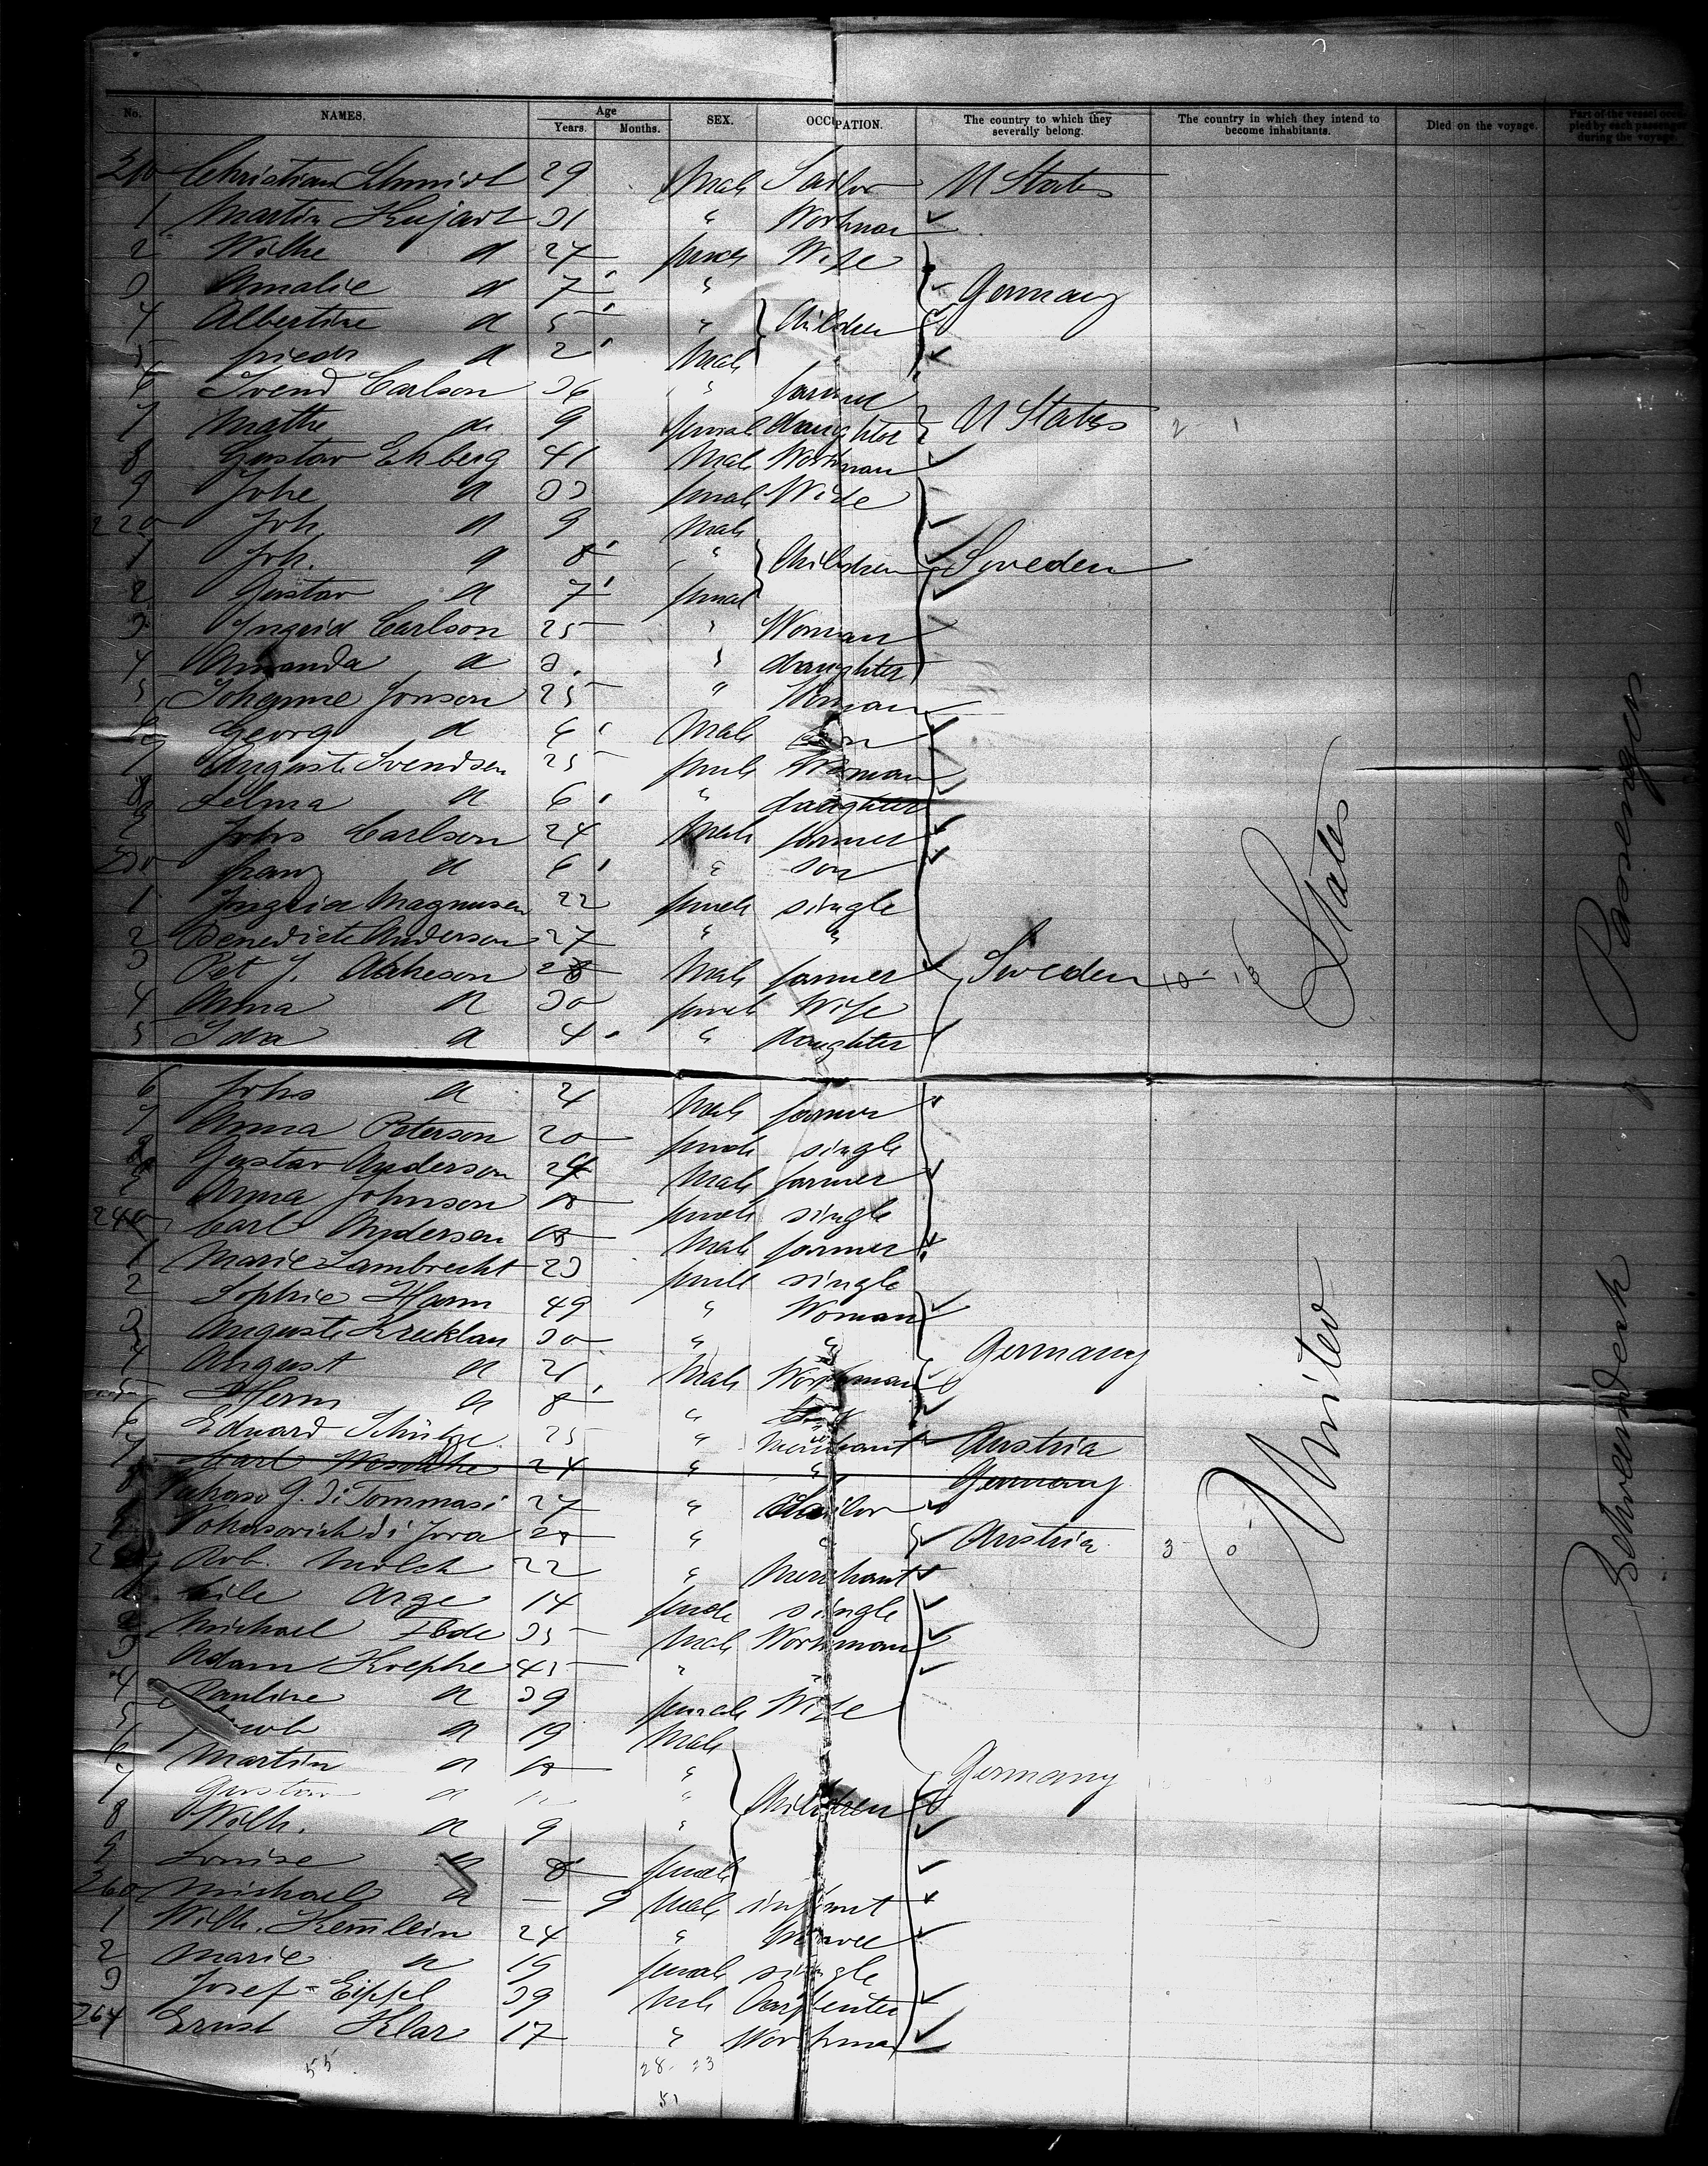 No. NAMES. Age Years. Months. SEX. OCCUPATION. The country to which they severally belong. The country in which they intend to become inhabitants. Died on the voyage. Part of the vessel occupied by each passenger during the voyage.
210 Christian Schmidt 29 Male Sailor U States
1 Martin Kujart 31 " Workman
2 Wilhe d 27 female Wife
3 Amalie d 7 " Germany
4 Albertine d 5 " Children
5 friedr d 2 Male
6 Svend Carlson 36 " farmer
7 Mathe d 9 female daughter U States 2 1
8 Gustav Ekberg 41 Male Workman
9 Johe d 33 female Wife
220 Joh d 9 Male
1 Joh. d 8 " Children Sweden
2 Gustav d 7 female
3 Ingrid Carlson 25 " Woman
4 Amanda d 3 " daughter
5 Johanne Jonson 25 " Woman
6 Georg d 6 Male Son
7 Auguste Svendsen 25 female Woman
8 Selma d 6 " daughter
9 Johs Carlson 24 Male farmer
230 franz d 6 " son
1 Ingrid Magnusen 22 female single
2 Benedicte Anderson 27 " "
3 Pet J. 28 Male farmer Sweden 10 13
4 Anna d 30 female Wife
5 Ida d 4 " daughter
6 Johs d 24 Male farmer
7 Anna Peterson 20 female single
8 Gustav Anderson 24 Male farmer
9 Anna Johnson 18 female single
240 Carl Anderson 18 Male farmer
1 Marie Lambrecht 23 female single
2 Sophie Hamm 49 " Woman
3 Auguste Krecklau 30 " " Germany
4 August d 21 Male Workman
5 Herm d 8 "
6 Eduard Schütze 25 " Merchant Austria
7 Carl 24 " " Germany
8 G. di Tommasi 27 " Sailor
9 di Jova 28 " " Austria 3 0
Rob. 22 " Merchant
1 14 female single
2 Michael 35 Male Workman
3 Adam Koepke 45 " "
4 Pauline d 39 female Wife
5 Jacob d 19 Male
6 Martin d 18 " Germany
7 Gustav d " Children
8 Wilh. d 9 "
9 Louise d 8 female
260 Michael d — 9 Male infant
1 Wilh. Kemlein 24 "
2 Marie d 19 female single
3 Josef Eippel 39 Male Carpenter
264 Ernst Klar 17 " Workman
55 28 23
51
United States
Betweendeck Passengers